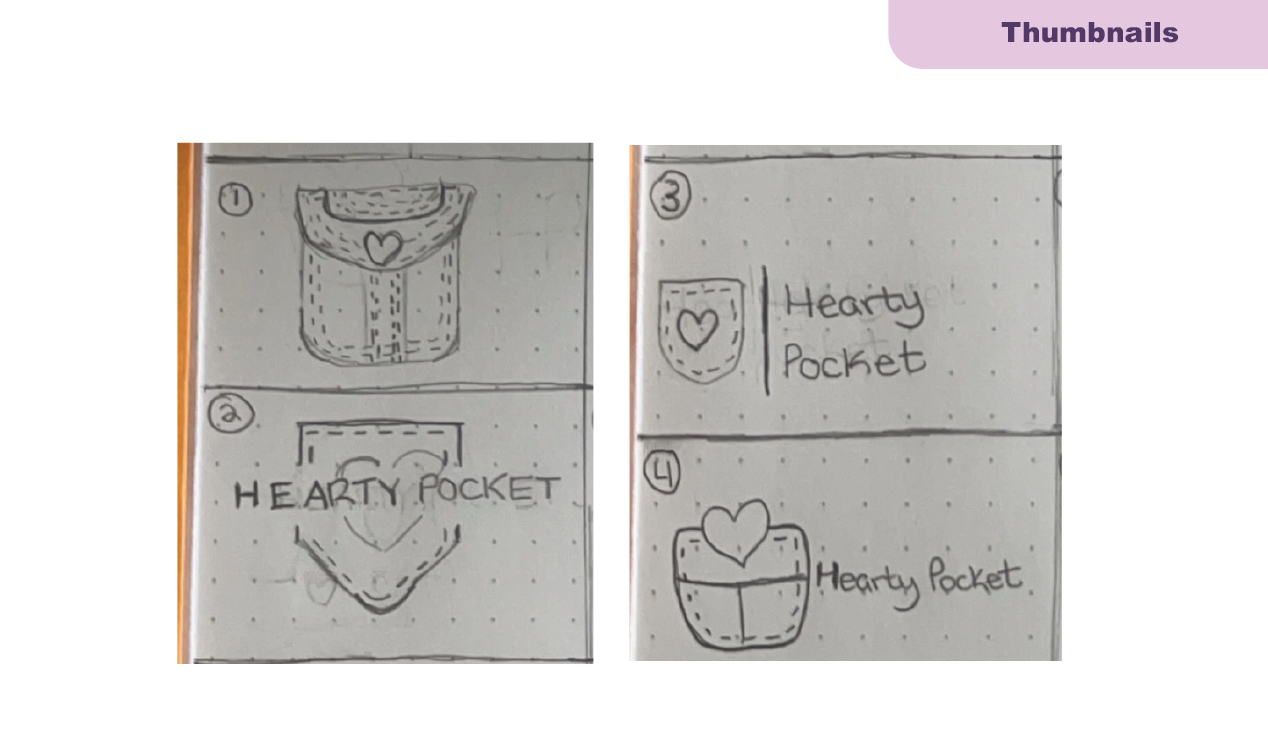 Thumbnails
1
2
HEARTY POCKET
3
Hearty
Pocket
4
Hearty Pocket